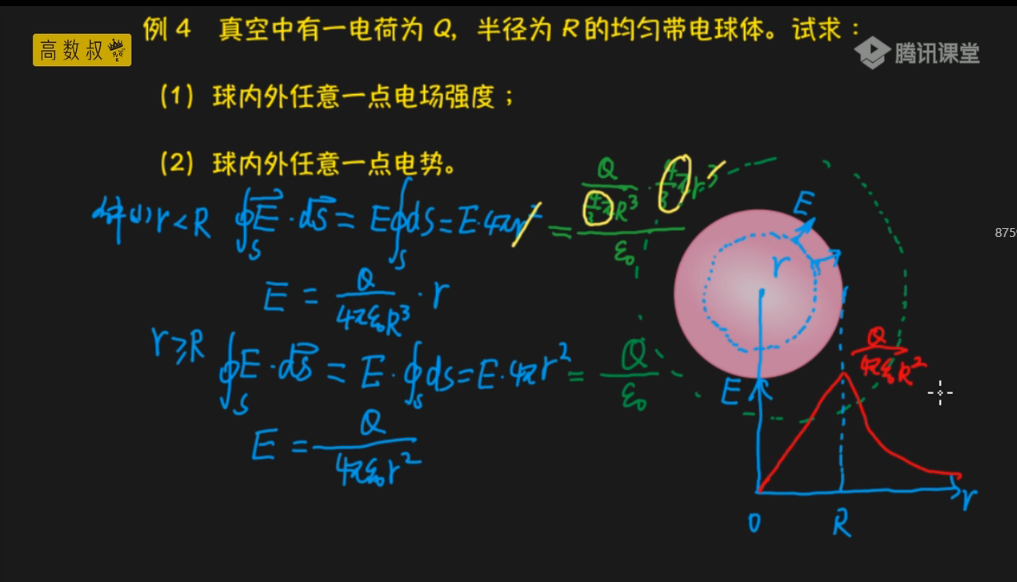 例 4 真空中有一电荷为 Q, 半径为 R 的均匀带电球体。试求：
高数叔
腾讯课堂
(1) 球内外任意一点电场强度；
(2) 球内外任意一点电势。
(1) r<R ∮_S E⃗·dS⃗ = E∮_S dS = E·4πr² = (Q/(4/3 πR³) · 4/3 πr³)/ε₀
E
r
8759
E = Q/(4πε₀R³) · r
r≥R ∮_S E·dS⃗ = E·∮_S dS = E·4πr² = Q/ε₀
Q/(4πε₀R²)
E
E = Q/(4πε₀r²)
r
0 R